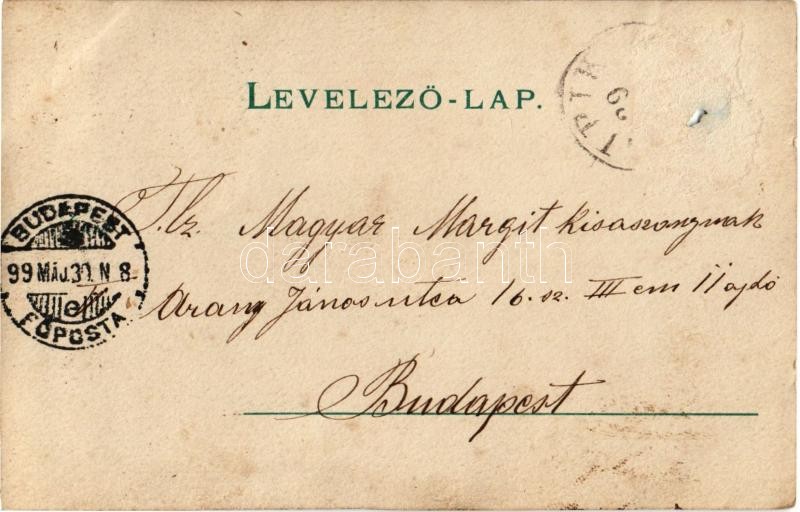 LEVELEZŐ-LAP.
99
T. cz. Magyar Margit kisaszonynak
BUDAPEST
99 MÁJ. 30. N. 8
FŐPOSTA
Arany János utca 16. sz. III em 11 ajdó
Budapest
darabanth